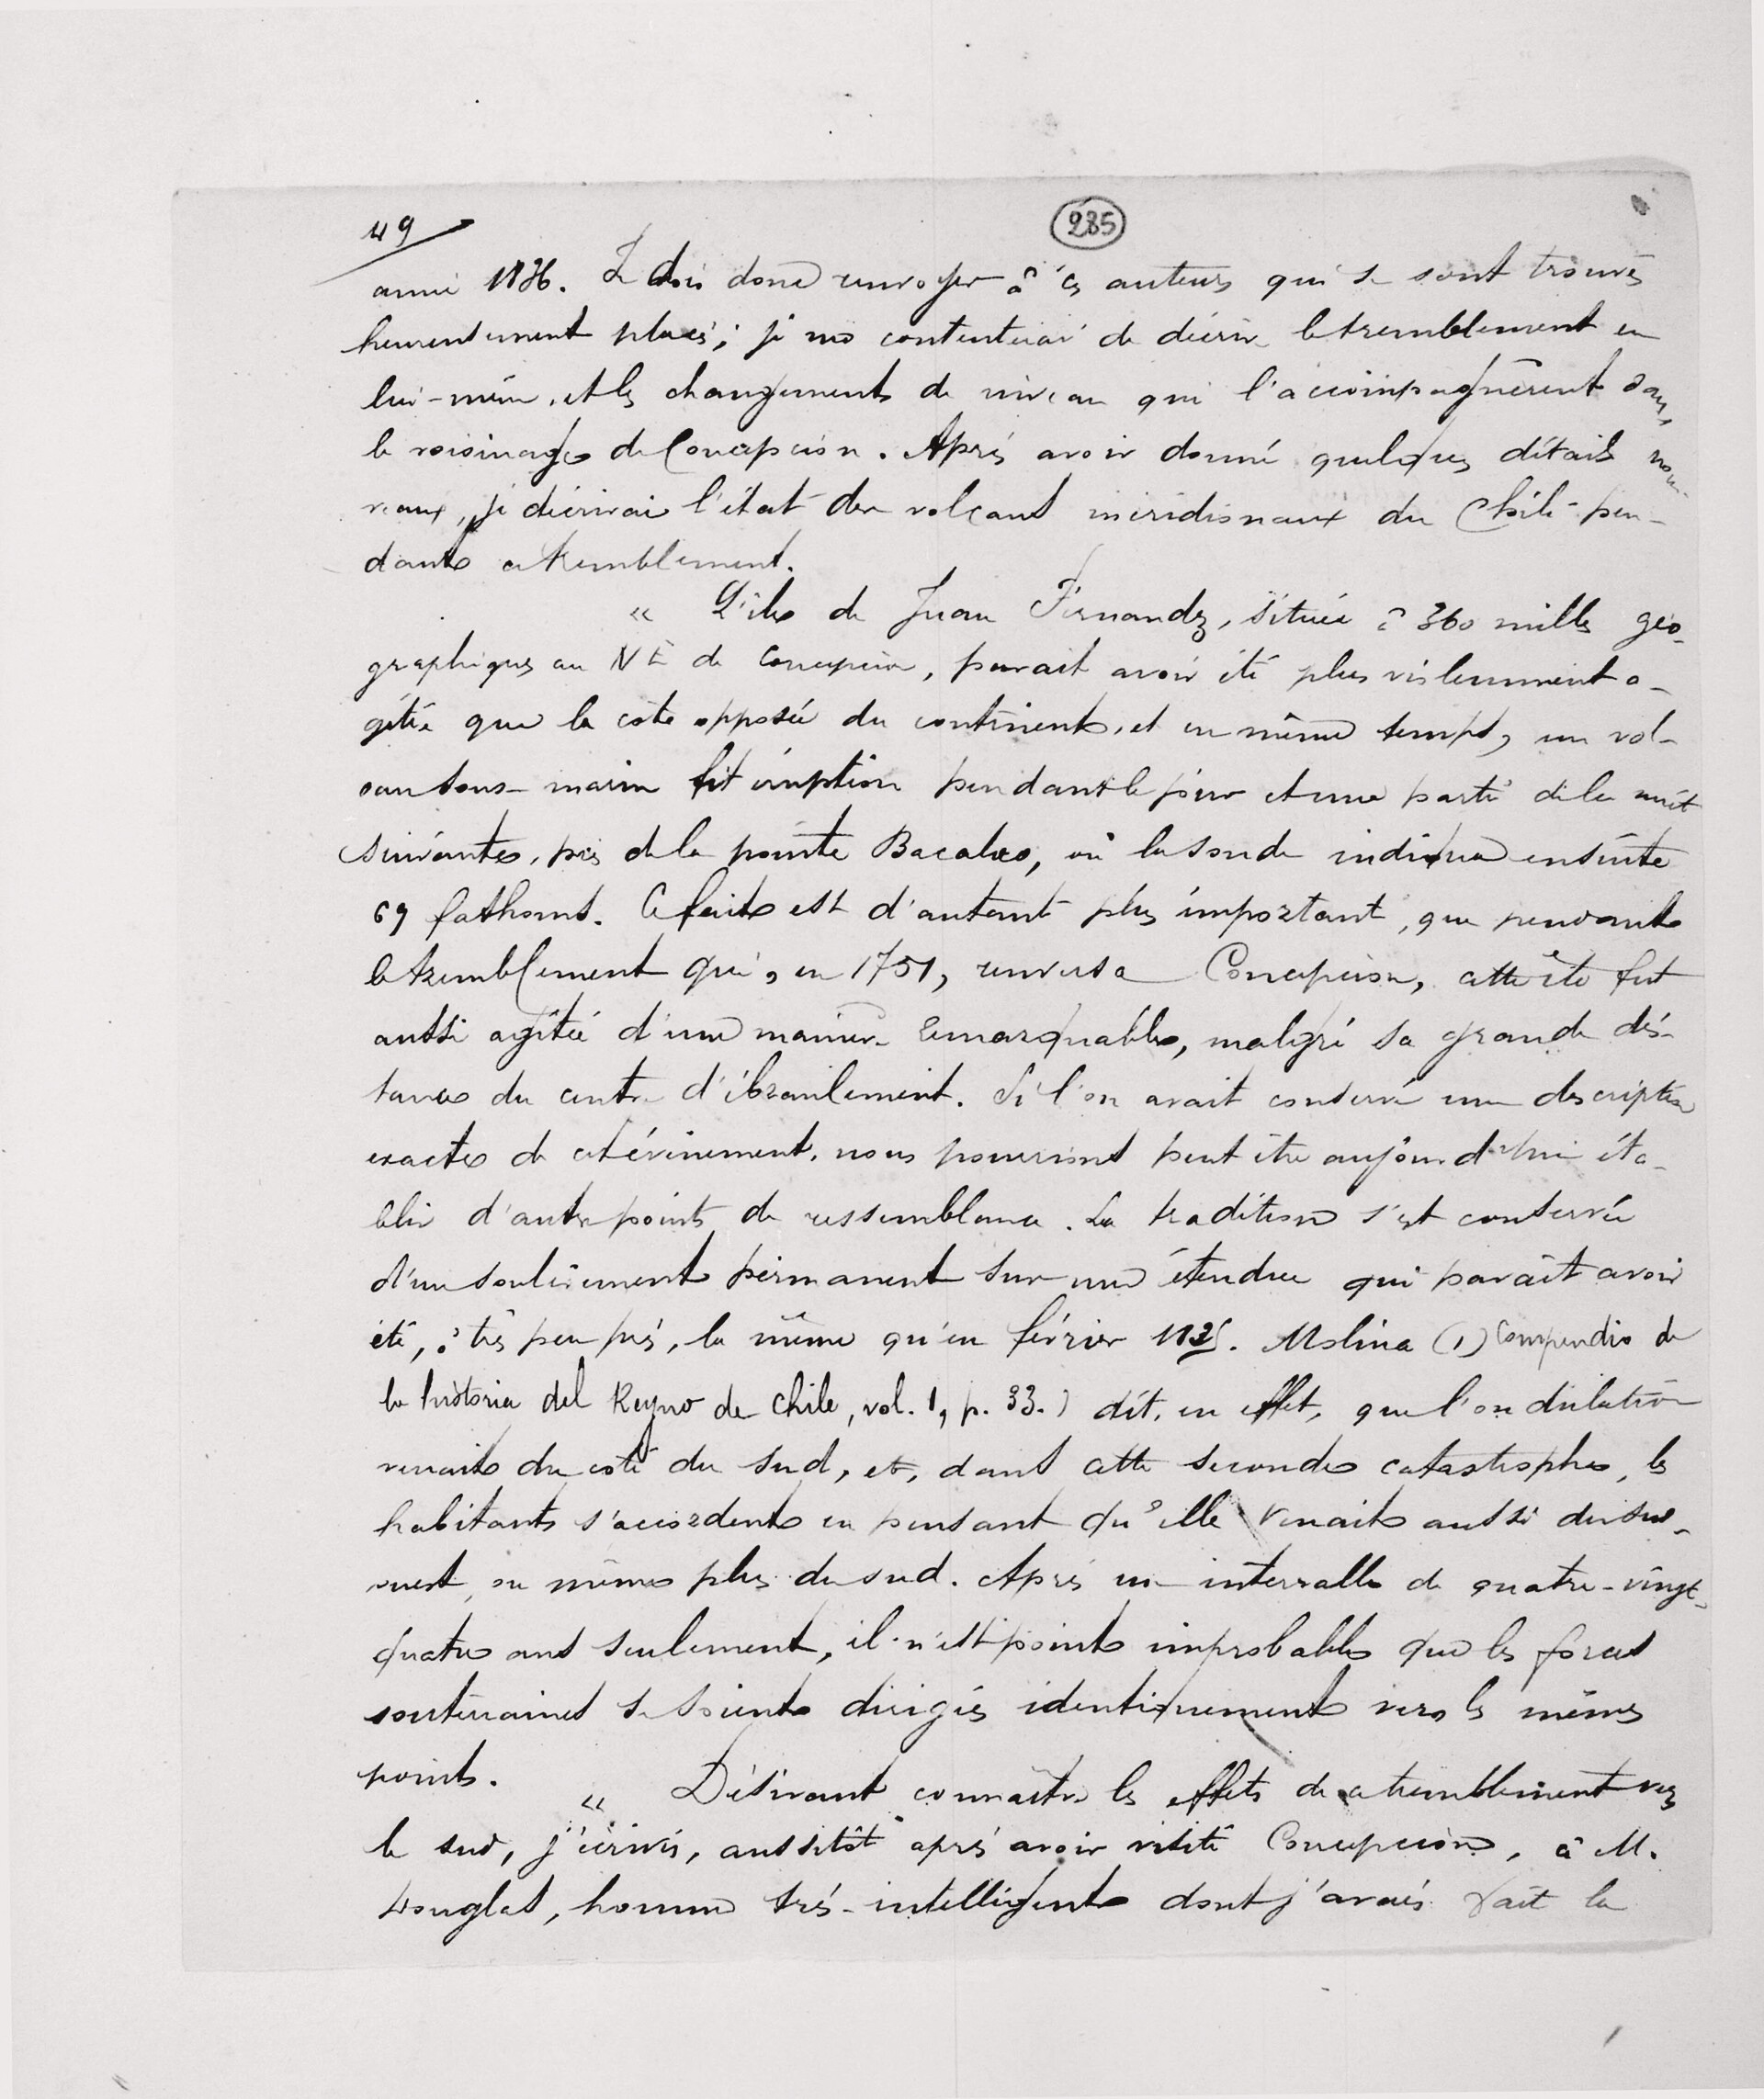 49
285
année 1836. Je dois donc renvoyer à ces auteurs qui se sont trouvés
heureusement placés; je me contenterai de décrire le tremblement en
lui-même, et les changements de niveau qui l'accompagnèrent dans
le voisinage de Concepcion. Après avoir donné quelques détails nou-
veaux, je décrirai l'état des volcans méridionaux du Chili pen-
dant ce tremblement.
« L'île de Juan Fernandez, située à 360 milles géo-
graphiques au NE de Concepcion, parait avoir été plus violemment a-
gitée que la côte opposée du continent, et en même temps, un vol-
can sous-marin fit éruption pendant le jour et une partie de la nuit
suivante, près de la pointe Bacalao, où la sonde indiqua ensuite
69 fathoms. Ce fait est d'autant plus important, que pendant
le tremblement qui, en 1751, renversa Concepcion, cette île fut
aussi agitée d'une manière remarquable, malgré sa grande dis-
tance du centre d'ébranlement. Si l'on avait conservé une description
exacte de cet évènement, nous pourrions peut être aujourd'hui éta-
blir d'autres points de ressemblance. La tradition s'est conservée
d'un soulèvement permanent sur une étendue qui parait avoir
été, à très peu près, la même qu'en février 1835. Molina (1) Compendio de
la historia del Reyno de Chile, vol. 1, p. 33.) dit, en effet, que l'ondulation
venait du côté du sud, et, dans cette seconde catastrophe, les
habitants s'accordent en pensant qu'elle venait aussi du sud-
ouest, ou même plus du sud. Après un intervalle de quatre-vingt-
quatre ans seulement, il n'est point improbable que les forces
souterraines se soient dirigées identiquement vers les mêmes
points.
« Désirant connaître les effets de ce tremblement vers
le sud, j'écrivis, aussitôt après avoir visité Concepcion, à M.
Douglas, homme très-intelligent dont j'avais fait la